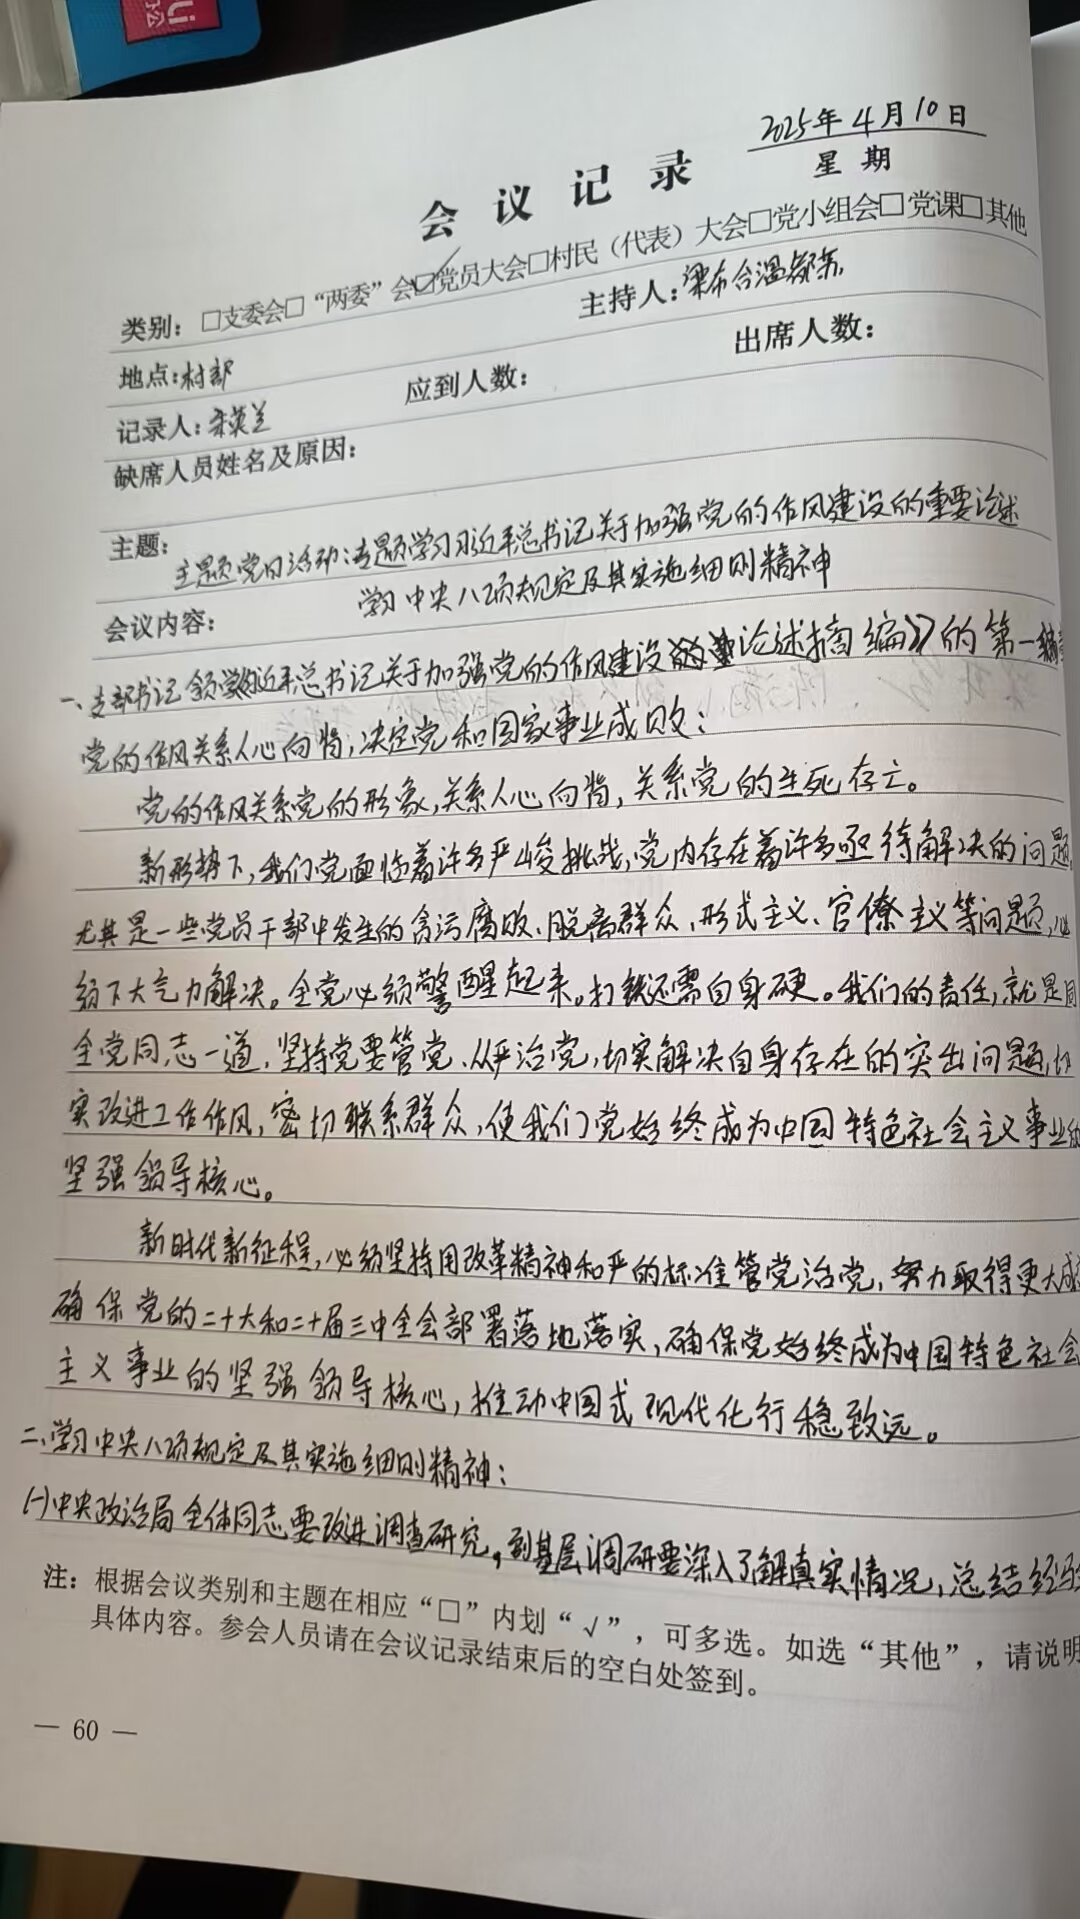 2025年4月10日
星期
会议记录
类别：□支委会□“两委”会☑党员大会□村民（代表）大会□党小组会□党课□其他
地点：村部 主持人：梁布合温都苏
记录人：宋英兰 应到人数： 出席人数：
缺席人员姓名及原因：
主题：主题党日活动：专题学习习近平总书记关于加强党的作风建设的重要论述
会议内容： 学习中央八项规定及其实施细则精神
一、支部书记领学《习近平总书记关于加强党的作风建设论述摘编》的第一编
党的作风关系人心向背，决定党和国家事业成败：
党的作风关系党的形象，关系人心向背，关系党的生死存亡。
新形势下，我们党面临着许多严峻挑战，党内存在着许多亟待解决的问题
尤其是一些党员干部中发生的贪污腐败、脱离群众、形式主义、官僚主义等问题，必
须下大气力解决。全党必须警醒起来。打铁还需自身硬。我们的责任，就是同
全党同志一道，坚持党要管党、从严治党，切实解决自身存在的突出问题，切
实改进工作作风，密切联系群众，使我们党始终成为中国特色社会主义事业的
坚强领导核心。
新时代新征程，必须坚持用改革精神和严的标准管党治党，努力取得更大成
确保党的二十大和二十届三中全会部署落地落实，确保党始终成为中国特色社会
主义事业的坚强领导核心，推动中国式现代化行稳致远。
二、学习中央八项规定及其实施细则精神：
(一)中央政治局全体同志要改进调查研究，到基层调研要深入了解真实情况，总结经验
注：根据会议类别和主题在相应“□”内划“√”，可多选。如选“其他”，请说明
具体内容。参会人员请在会议记录结束后的空白处签到。
— 60 —